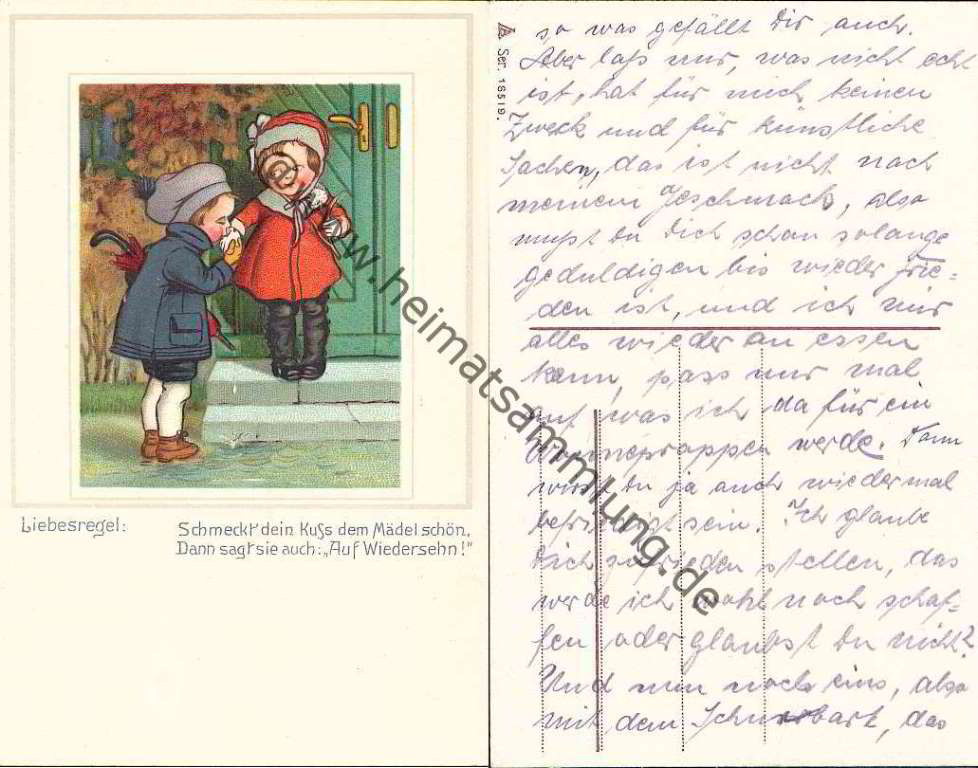 Liebesregel:
Schmeckt dein Kuſs dem Mädel schön,
Dann sagt sie auch: „Auf Wiedersehn!“
www.heimatsammlung.de
Ser. 18519.
so was gefällt Dir auch.
Aber laß nur, was nicht echt
ist, hat für mich keinen
Zweck und für künstliche
Sachen, das ist nicht nach
meinem Geschmack, also
mußt Du Dich schon solange
geduldigen bis wieder Frie=
den ist, und ich mir
alles wieder an essen
kann, pass nur mal
auf was ich da für ein
werde. Dann
wirst Du ja auch wiedermal
befriedigt sein. Ich glaube
Dich zufrieden stellen, das
werde ich wohl noch schaf=
fen oder glaubst Du nicht?
Und nun noch eins, also
mit dem Schnurbart, das